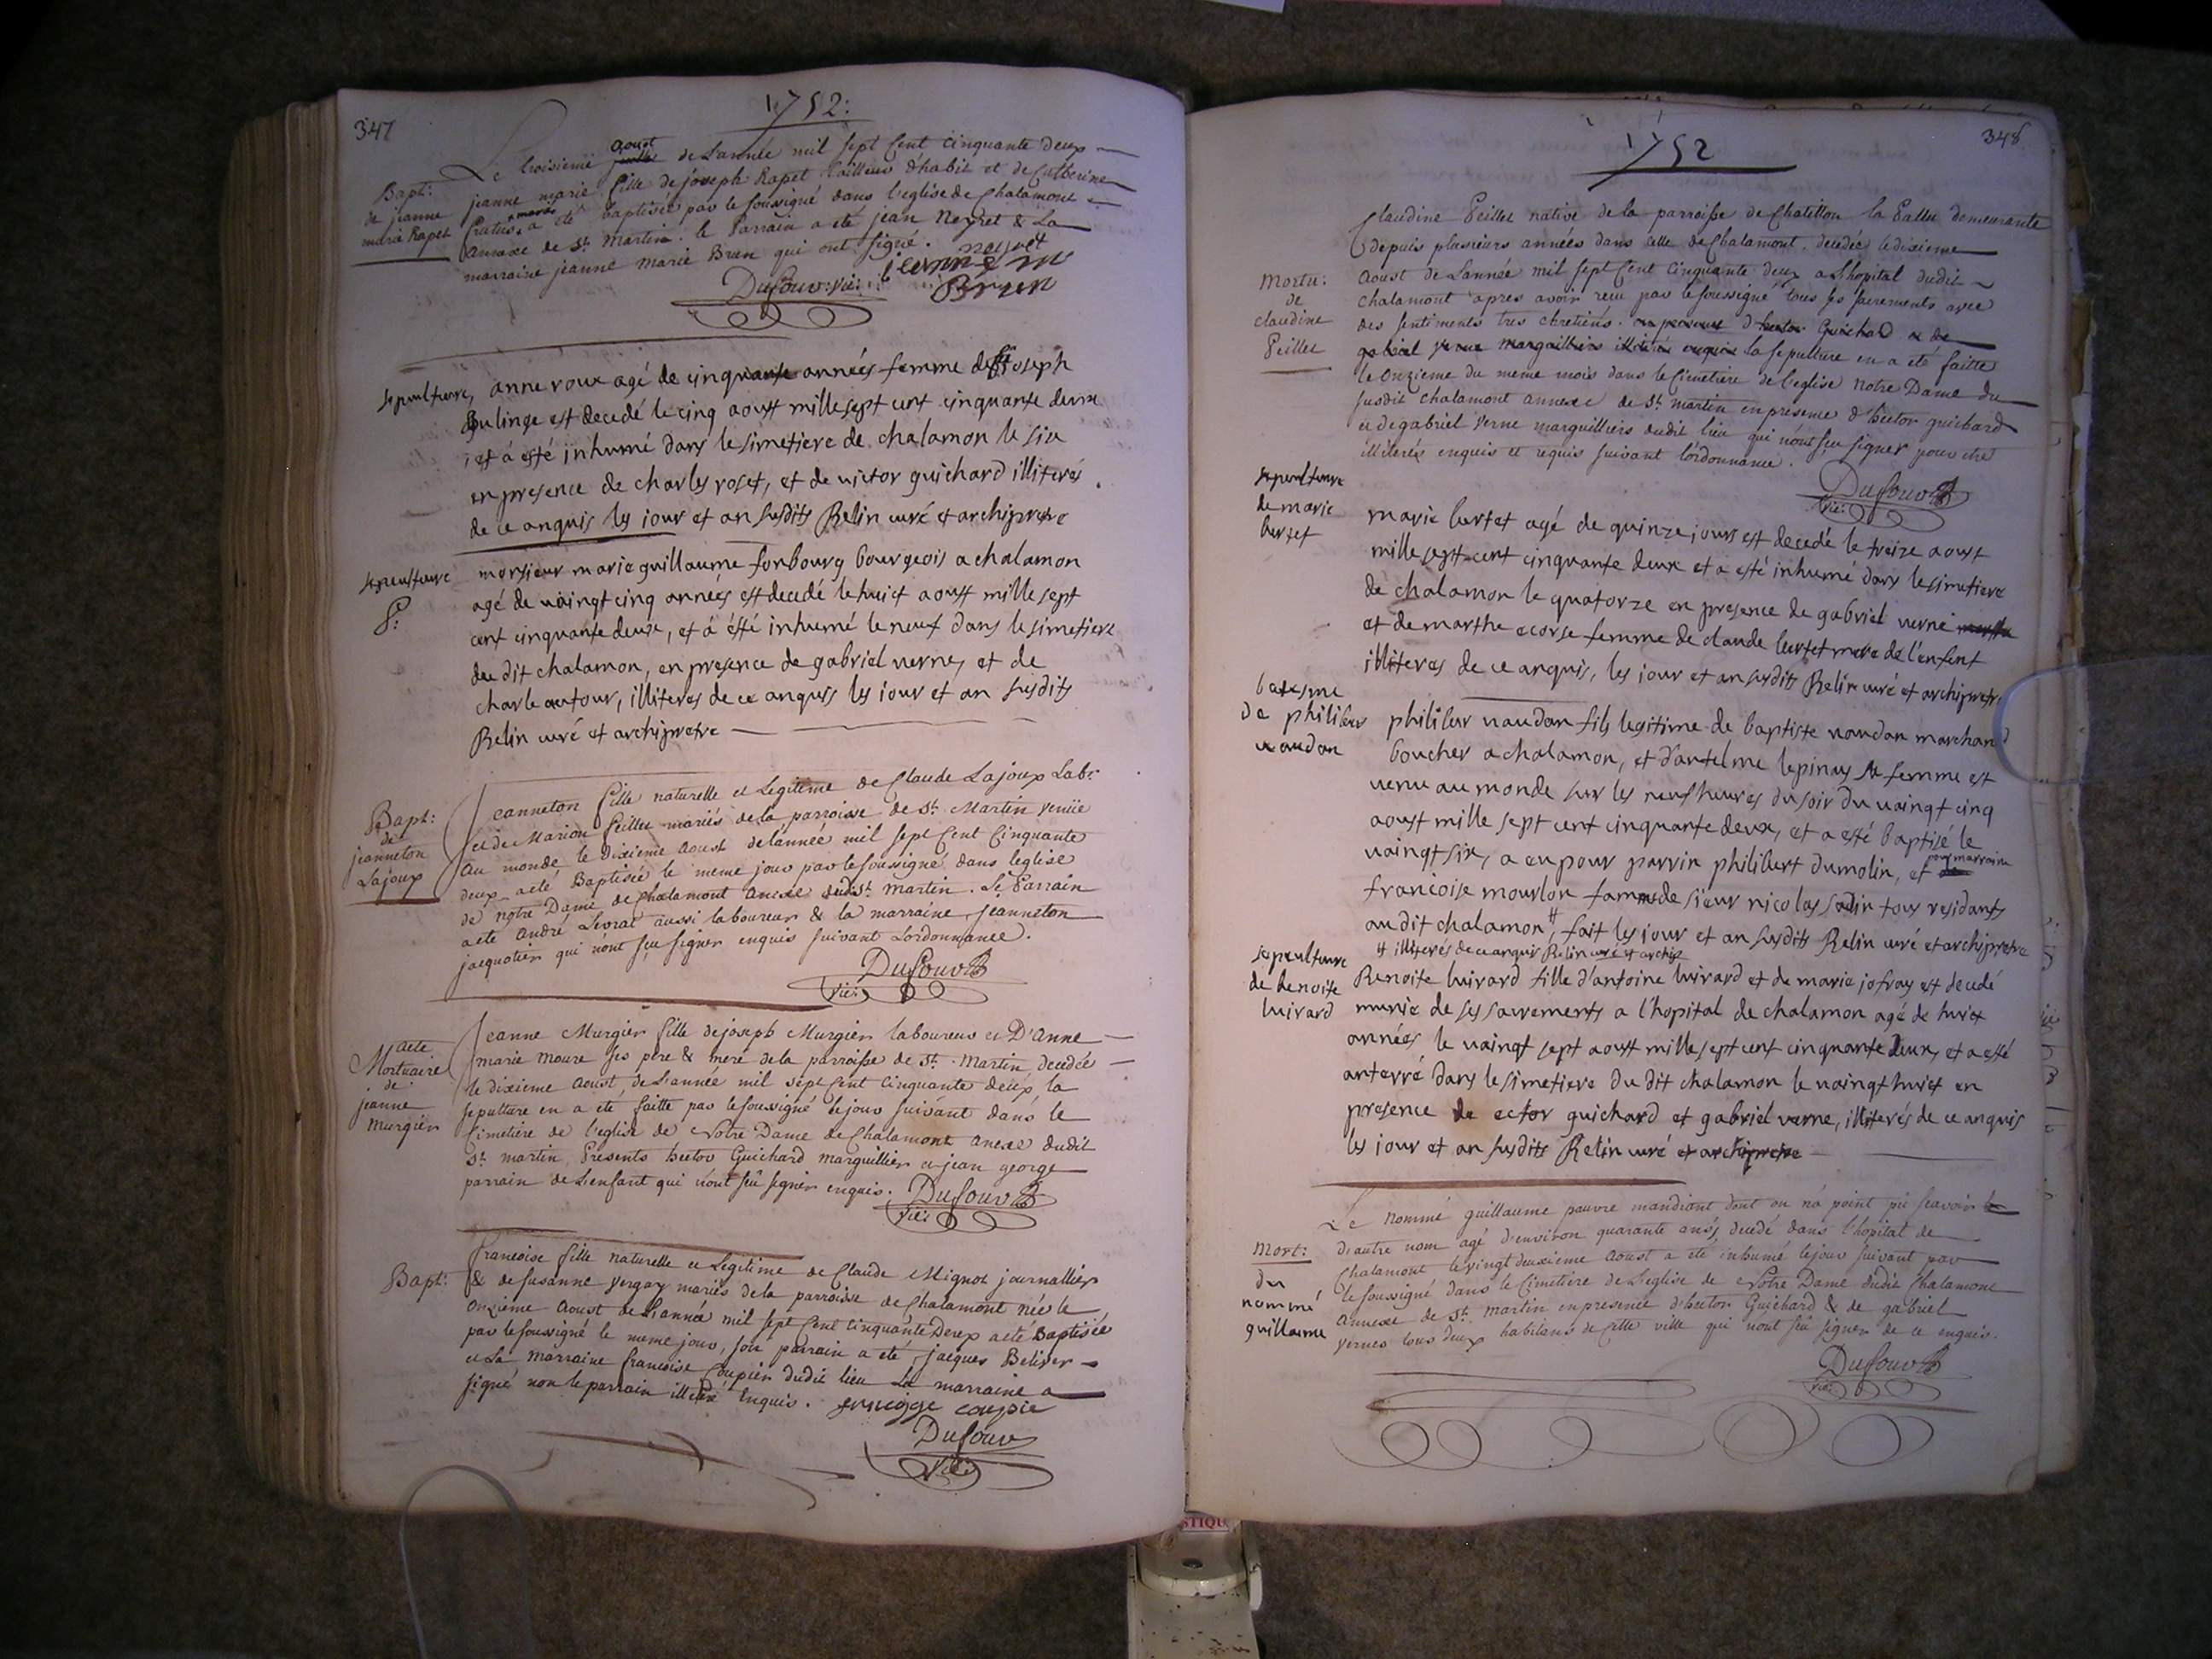 347
1752:
Bapt:
de jeanne
marie Rapet
Le troisieme aoust de L'année mil sept Cent Cinquante deux
jeanne marie fille de joseph Rapet Tailleur d'habit et de Catherine
mariés a été baptisée par le soussigné dans l'eglise de Chalamont
annexe de St. Martin. le Parrain a été jean Neyret & La
marraine jeanne Marie Brun qui ont signé. neyret
jeanne m
Dufour. vic: Brun
sepulture, anne roux agé de cinquante années femme de joseph
Bulinge est decedé le cinq aoust mille sept cent cinquante deux
et a esté inhumé dans le simetiere de chalamon le six
en presence de charles roset, et de victor guichard illiterés
de ce anquis les jour et an susdits Relin curé et archipretre
sepulture
monsieur marie guillaume fonbourg bourgeois a chalamon
agé de vaingt cinq années est decedé le huict aoust mille sept
cent cinquante deux, et á ésté inhumé le neuf dans le simetiere
du dit chalamon, en presence de gabriel verne, et de
charle autour, illiteres de ce anquis les jour et an susdits
Relin curé et archipretre
Bapt:
de
jeanneton
Lajoux
Jeanneton fille naturelle et Legitime de Claude Lajoux Labr.
et de Marion Peillet mariés de la parroisse de St. Martin venüe
au monde le dixieme aoust de l'année mil sept Cent Cinquante
deux a eté Baptisée le meme jour par le soussigné dans l'eglise
de notre Dame de Chalamont anexe dudit St. Martin. Le Parrain
a eté andré Levrat aussi laboureur & la marraine Jeanneton
jacquotier qui n'ont sçu signer enquis suivant L'ordonnance.
Dufour
vic:
acte
Mortuaire
de
jeanne
Murgier
Jeanne Murgier fille de joseph Murgier laboureur et D'anne
marie Moure ses pere & mere de la parroisse de St. Martin, decedée
le dixieme aoust, de L'année mil sept Cent Cinquante deux la
sepulture en a eté faitte par le soussigné le jour suivant dans le
Cimetiere de l'eglise de Notre Dame de Chalamont anexe dudit
St. martin, Présents hector Guichard marguillier et jean george
parrain de L'enfant qui n'ont sçu signer enquis. Dufour
vic:
Bapt:
francoise fille naturelle et Legitime de Claude Mignot journallier
& de susanne vergay mariés de la parroisse de Chalamont née le
onzieme aoust de L'année mil sept Cent Cinquante Deux a eté Baptisée
par le soussigné le meme jour, son parrain a eté jacques
et La Marraine francoise Coupier dudit lieu La marraine a
signé non le parrain illiteré Enquis. coupie
Dufour
vic:
348
1752
Mortu:
de
claudine
Peillet
Claudine Peillet native de la parroisse de Chatillon la Pallu demeurante
depuis plusieurs années dans celle de Chalamont. decedée le dixieme
aoust de L'année mil sept Cent Cinquante deux a l'hopital dudit
chalamont apres avoir reçu par le soussigné tous ses sacrements avec
des sentiments tres chretiens. en presence d'hector Guichard et de
gabriel verne marguilliers illiterés enquis la sepulture en a eté faitte
le Onzieme du meme mois dans le Cimetiere de l'eglise Notre Dame du
susdit chalamont annexe de St. martin en presence d'hector guichard
et de gabriel Verne marguilliers dudit lieu qui n'ont sçu signer pour etre
illiterés enquis et requis suivant l'ordonnance.
Dufour
vic:
sepulture
de marie
burtet
marie burtet agé de quinze jours est decedé le treize aoust
mille sept cent cinquante deux et a esté inhumé dans le simetiere
de chalamon le quatorze en presence de gabriel verne
et de marthe ecorse femme de claude burtet mere de l'enfent
illiteres de ce anquis, les jour et an susdits Relin curé et archipretre
batesme
de philibert
vaudan
philibert vaudan fils legitime de baptiste vaudan marchand
boucher a chalamon, et d'antelme lepinay sa femme est
venu au monde sur les neuf heures du soir du vaingt cinq
aoust mille sept cent cinquante deux, et a esté baptisé le
vaingt six, a eu pour parrin philibert dumolin, et pour marraine
francoise mourlon famme de sieur nicolas sodin tous residants
au dit chalamon # fait les jour et an susdits Relin curé et archipretre
# illiterés de ce anquis Relin curé et archip
sepulture
de benoite
buirard
Benoite buirard fille d'antoine buirard et de marie jofray est decedé
munie de ses sacrements a l'hopital de chalamon agé de huict
années le vaingt sept aoust mille sept cent cinquante deux, et a esté
anterré dans le simetiere du dit chalamon le vaingt huict en
presence de ector guichard et gabriel verne, illiterés de ce anquis
les jour et an susdits Relin curé et archipretre
Mort:
du
nommé
guillaume
Le nommé guillaume pauvre mandiant dont on n'a point pû scavoir
d'autre nom agé d'environ quarante ans, decedé dans l'hopital de
Chalamont le vingt deuxieme aoust a eté inhumé le jour suivant par
le soussigné dans le Cimetiere de L'eglise de Notre Dame dudit Chalamont
annexe de St. martin en presence d'hector Guichard & de gabriel
vernes tous deux habitans de Cette ville qui n'ont sçu signer de ce enquis.
Dufour
vic:
STIQU